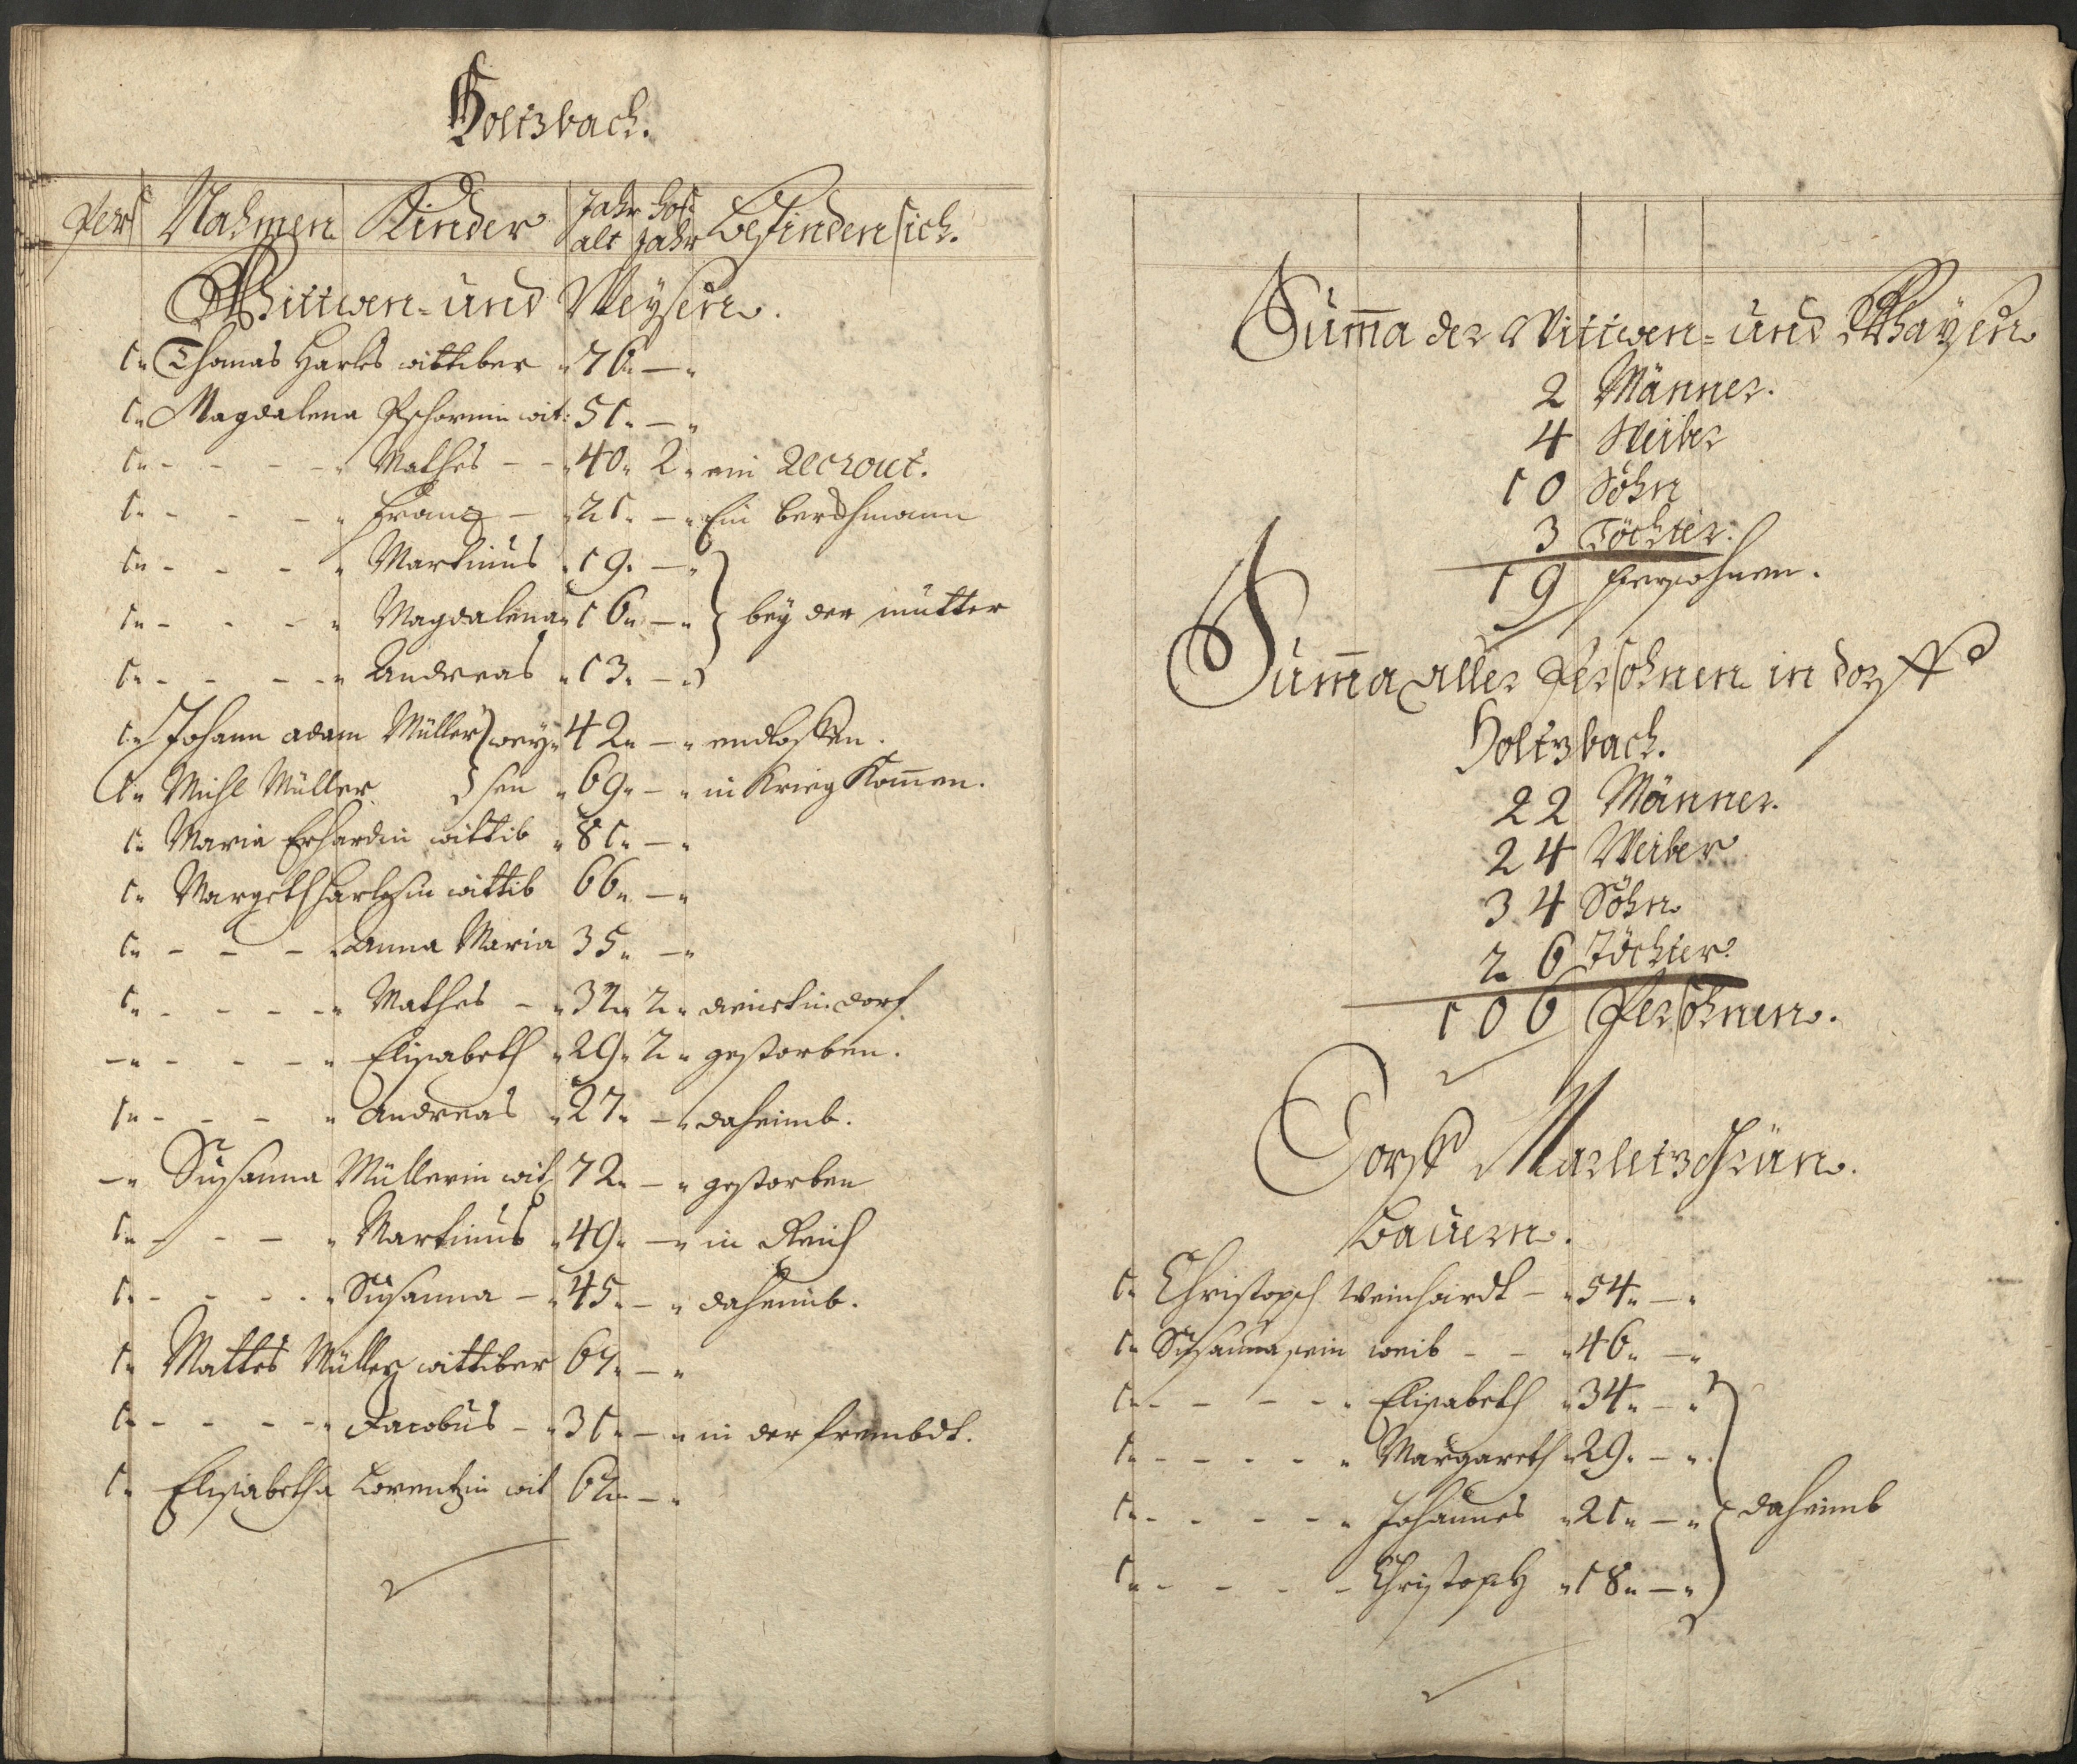 Holtzbach.
Pers Nahmen Kinder Jahr alt hof Jahr befinden sich.
Wittwen- und Weysen.
1 Thomas Harles wittiber 76 —
1 Magdalena Pschornin wit: 51 —
1 - - - - Mathes - - 40 2 ein Recrout.
1 - - - Franz - 21 — Ein berkhmann
1 - - - Martinus 19 —
1 - - - Magdalena 16 — } bey der mutter
1 - - - - Andreas 13 —
1 Johann adam Müller } wey- 42 — endloffen.
1 Michl Müller } sen 69 — in Krieg Kom̄en.
1 Maria Erhardin wittib 81 —
1 Margeth Harlesin wittib 66 —
1 - - - Anna Maria 35 —
1 - - - - Mathes - 32 2 dienst in dorf.
— - - - Elisabeth 29 2 gestorben.
1 - - - Andreas 27 — daheimb.
— Susanna Müllerin wit 72 — gestorben
1 - - - Martinus 49 — in Reich
1 - - - - Susanna - 45 — daheimb.
1 Mattes Müller wittiber 67 —
1 - - - - Jacobus - 31 — in der frembdt.
1 Elisabetha Lorentzin wit 62 —
Sum̄a der Wittwen- und Wayßen
2 Männer.
4 Weiber
10 Söhn
3 Töchter.
19 persohnen.
Sum̄a aller Persohnen in dorff
Holtzbach.
22 Männer.
24 Weiber
34 Söhn
26 Töchter
106 Persohnen.
Dorff Markletzgrün.
Bauern.
1 Christoph Weinhardt - 54 —
1 Susanna sein weib - - 46 —
1 - - - - Elisabeth 34 —
1 - - - - Margareth 29 —
1 - - - - Johannes 21 — } daheimb
1 - - - - Christoph 18 —